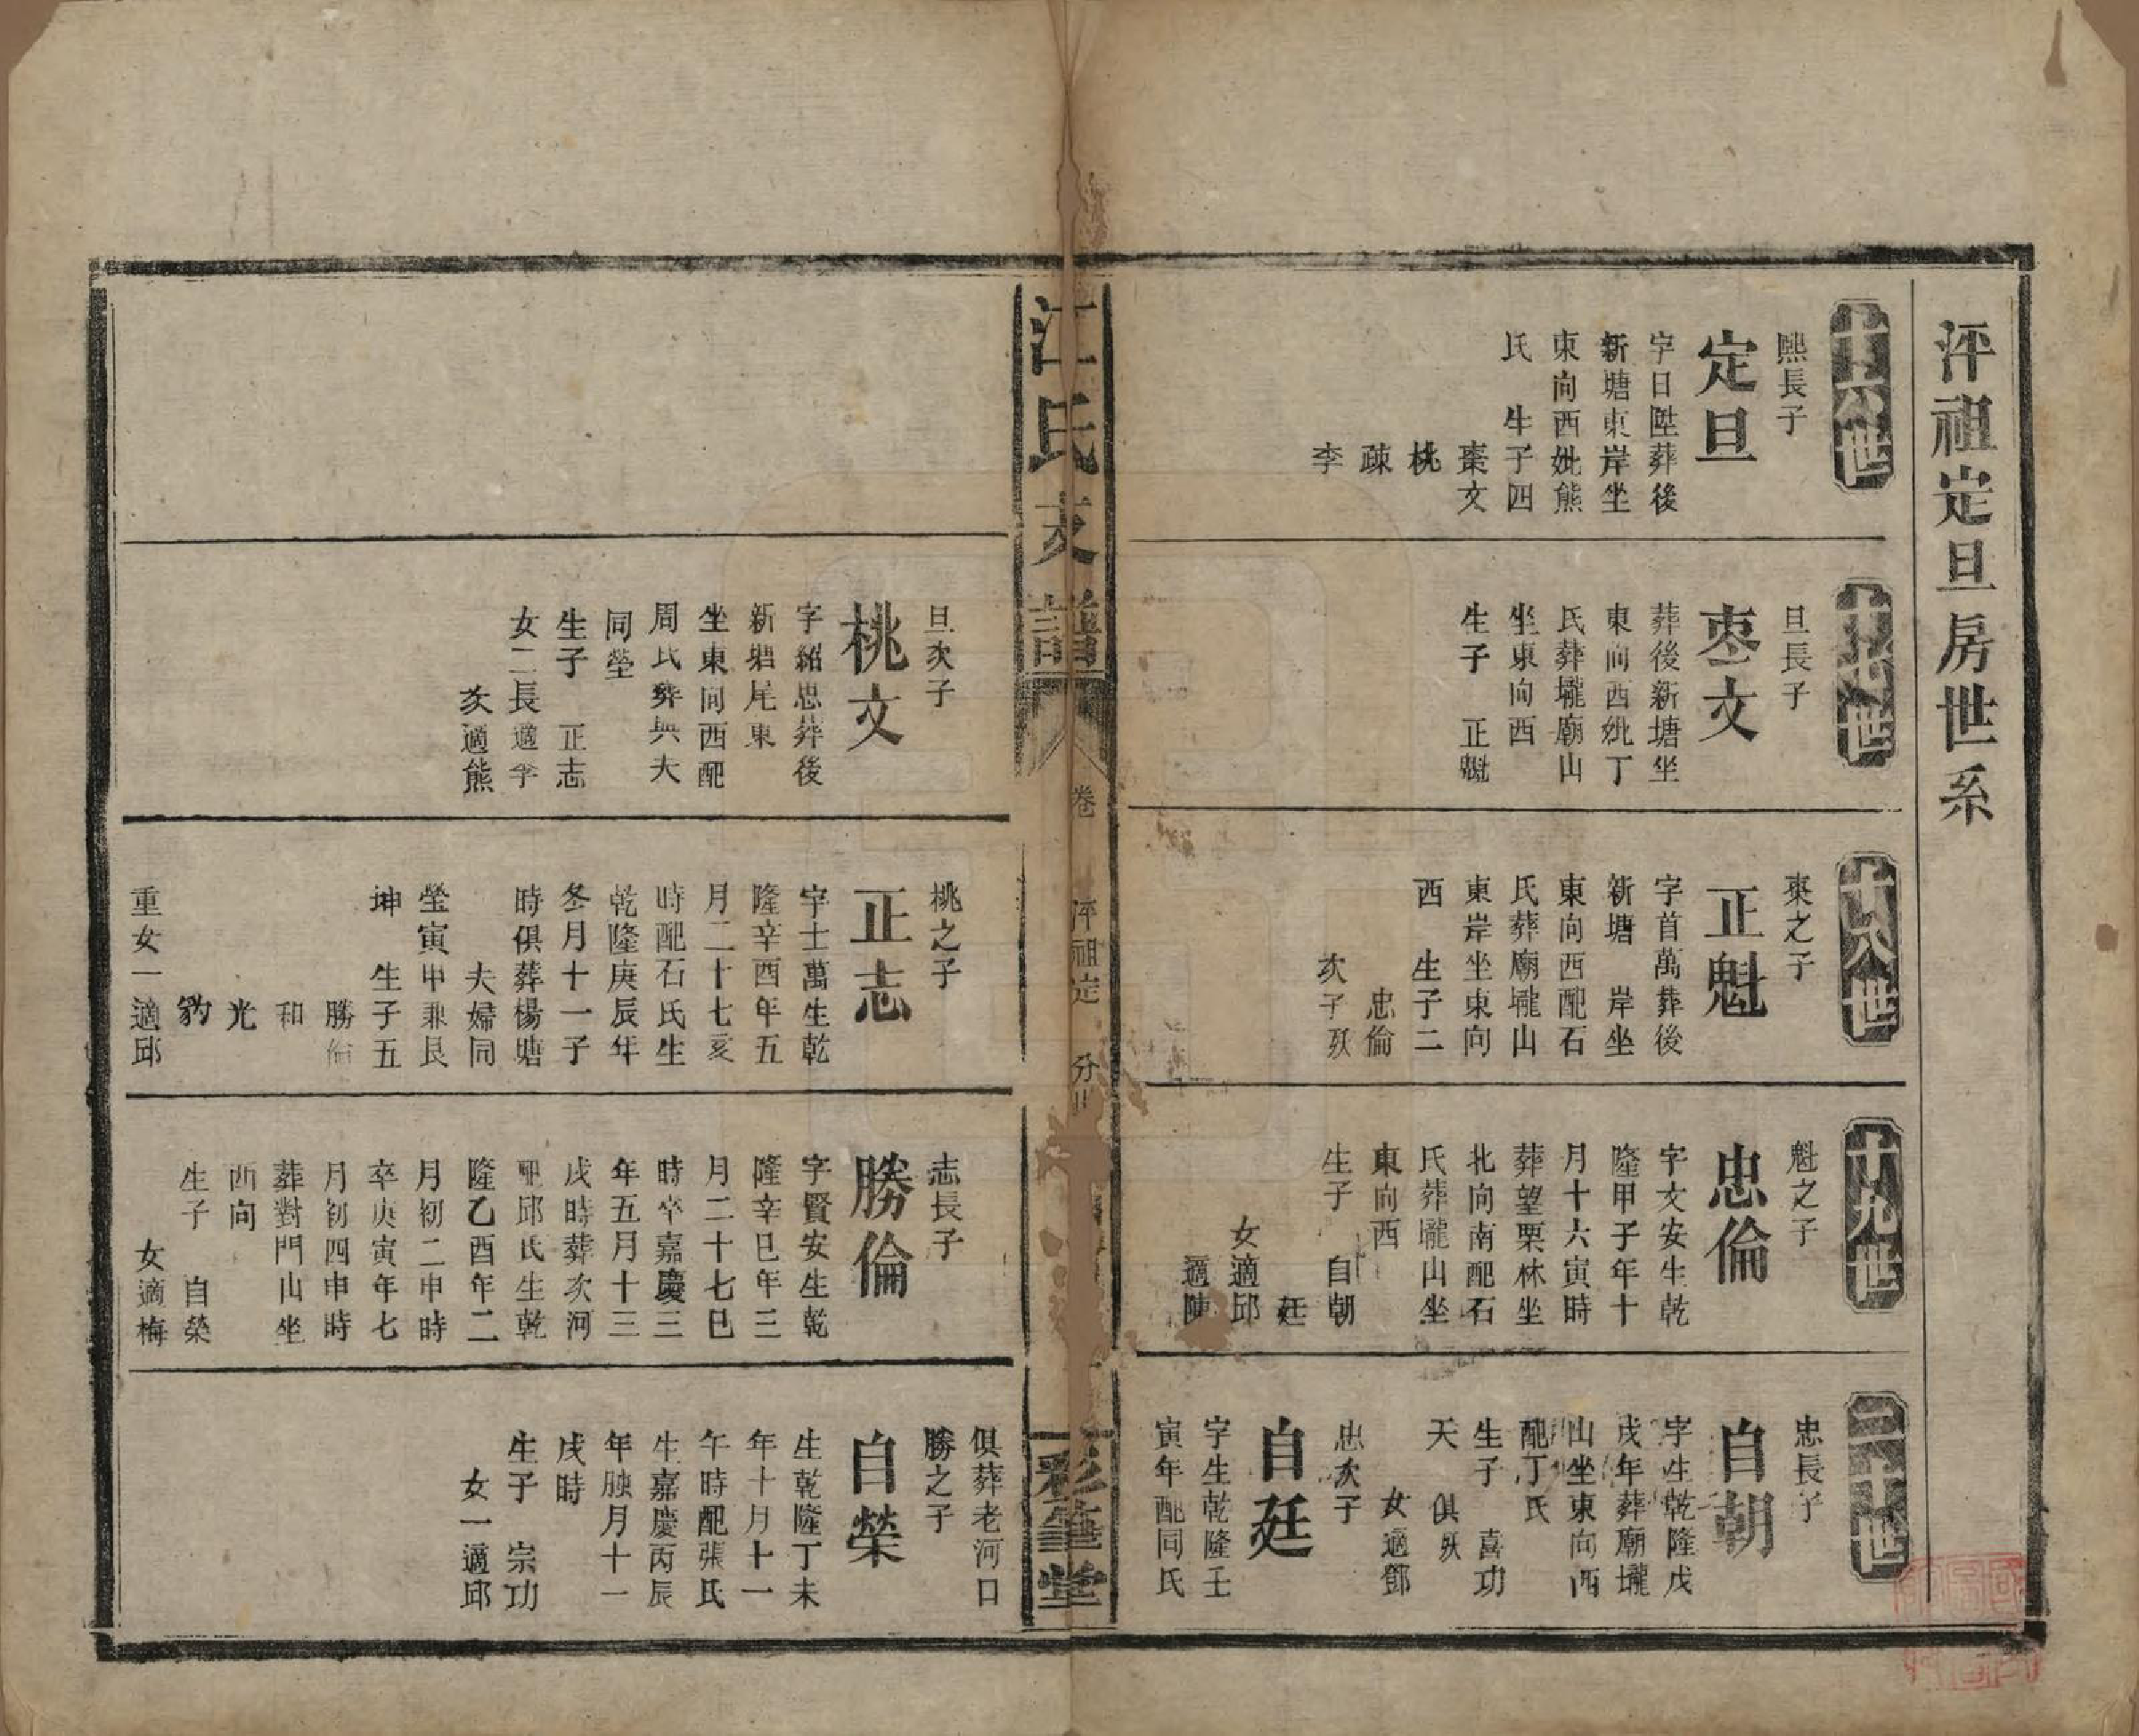 泙祖定旦房世系
十六世
熙長子
定旦
字日陞葬後
新塘東岸坐
東向西妣熊
氏 生子四
棗文
桃
疎
李
十七世
旦長子
枣文
葬後新塘坐
東向西妣丁
氏葬壠廟山
坐東向西
生子 正魁
十八世
枣之子
正魁
字首萬葬後
新塘 岸坐
東向西配石
氏葬廟壠山
東岸坐東向
西 生子二
忠倫
次子殀
十九世
魁之子
忠倫
字文安生乾
隆甲子年十
月十六寅時
葬望栗林坐
北向南配石
氏葬壠山坐
東向西
生子 自朝
廷
女適邱
適陳
二十世
忠長子
自朝
字生乾隆戊
戌年葬廟壠
山坐東向西
配丁氏
生子 喜功
天 俱殀
女適鄧
忠次子
自廷
字生乾隆壬
寅年配同氏
江氏支譜
卷
泙祖定
分
彩筆堂
旦次子
桃文
字紹思葬後
新塘尾東
坐東向西配
周氏葬與夫
同塋
生子 正志
女二長適李
次適熊
桃之子
正志
字士萬生乾
隆辛酉年五
月二十七亥
時配石氏生
乾隆庚辰年
冬月十一子
時俱葬楊塘
夫婦同
塋寅甲兼艮
坤 生子五
勝倫
和
光
豹
重女一適邱
志長子
勝倫
字賢安生乾
隆辛巳年三
月二十七巳
時卒嘉慶三
年五月十三
戌時葬次河
配邱氏生乾
隆乙酉年二
月初二申時
卒庚寅年七
月初四申時
葬對門山坐
西向
生子 自榮
女適梅
俱葬老河口
勝之子
自榮
生乾隆丁未
年十月十一
午時配張氏
生嘉慶丙辰
年臘月十一
戌時
生子 宗功
女一適邱